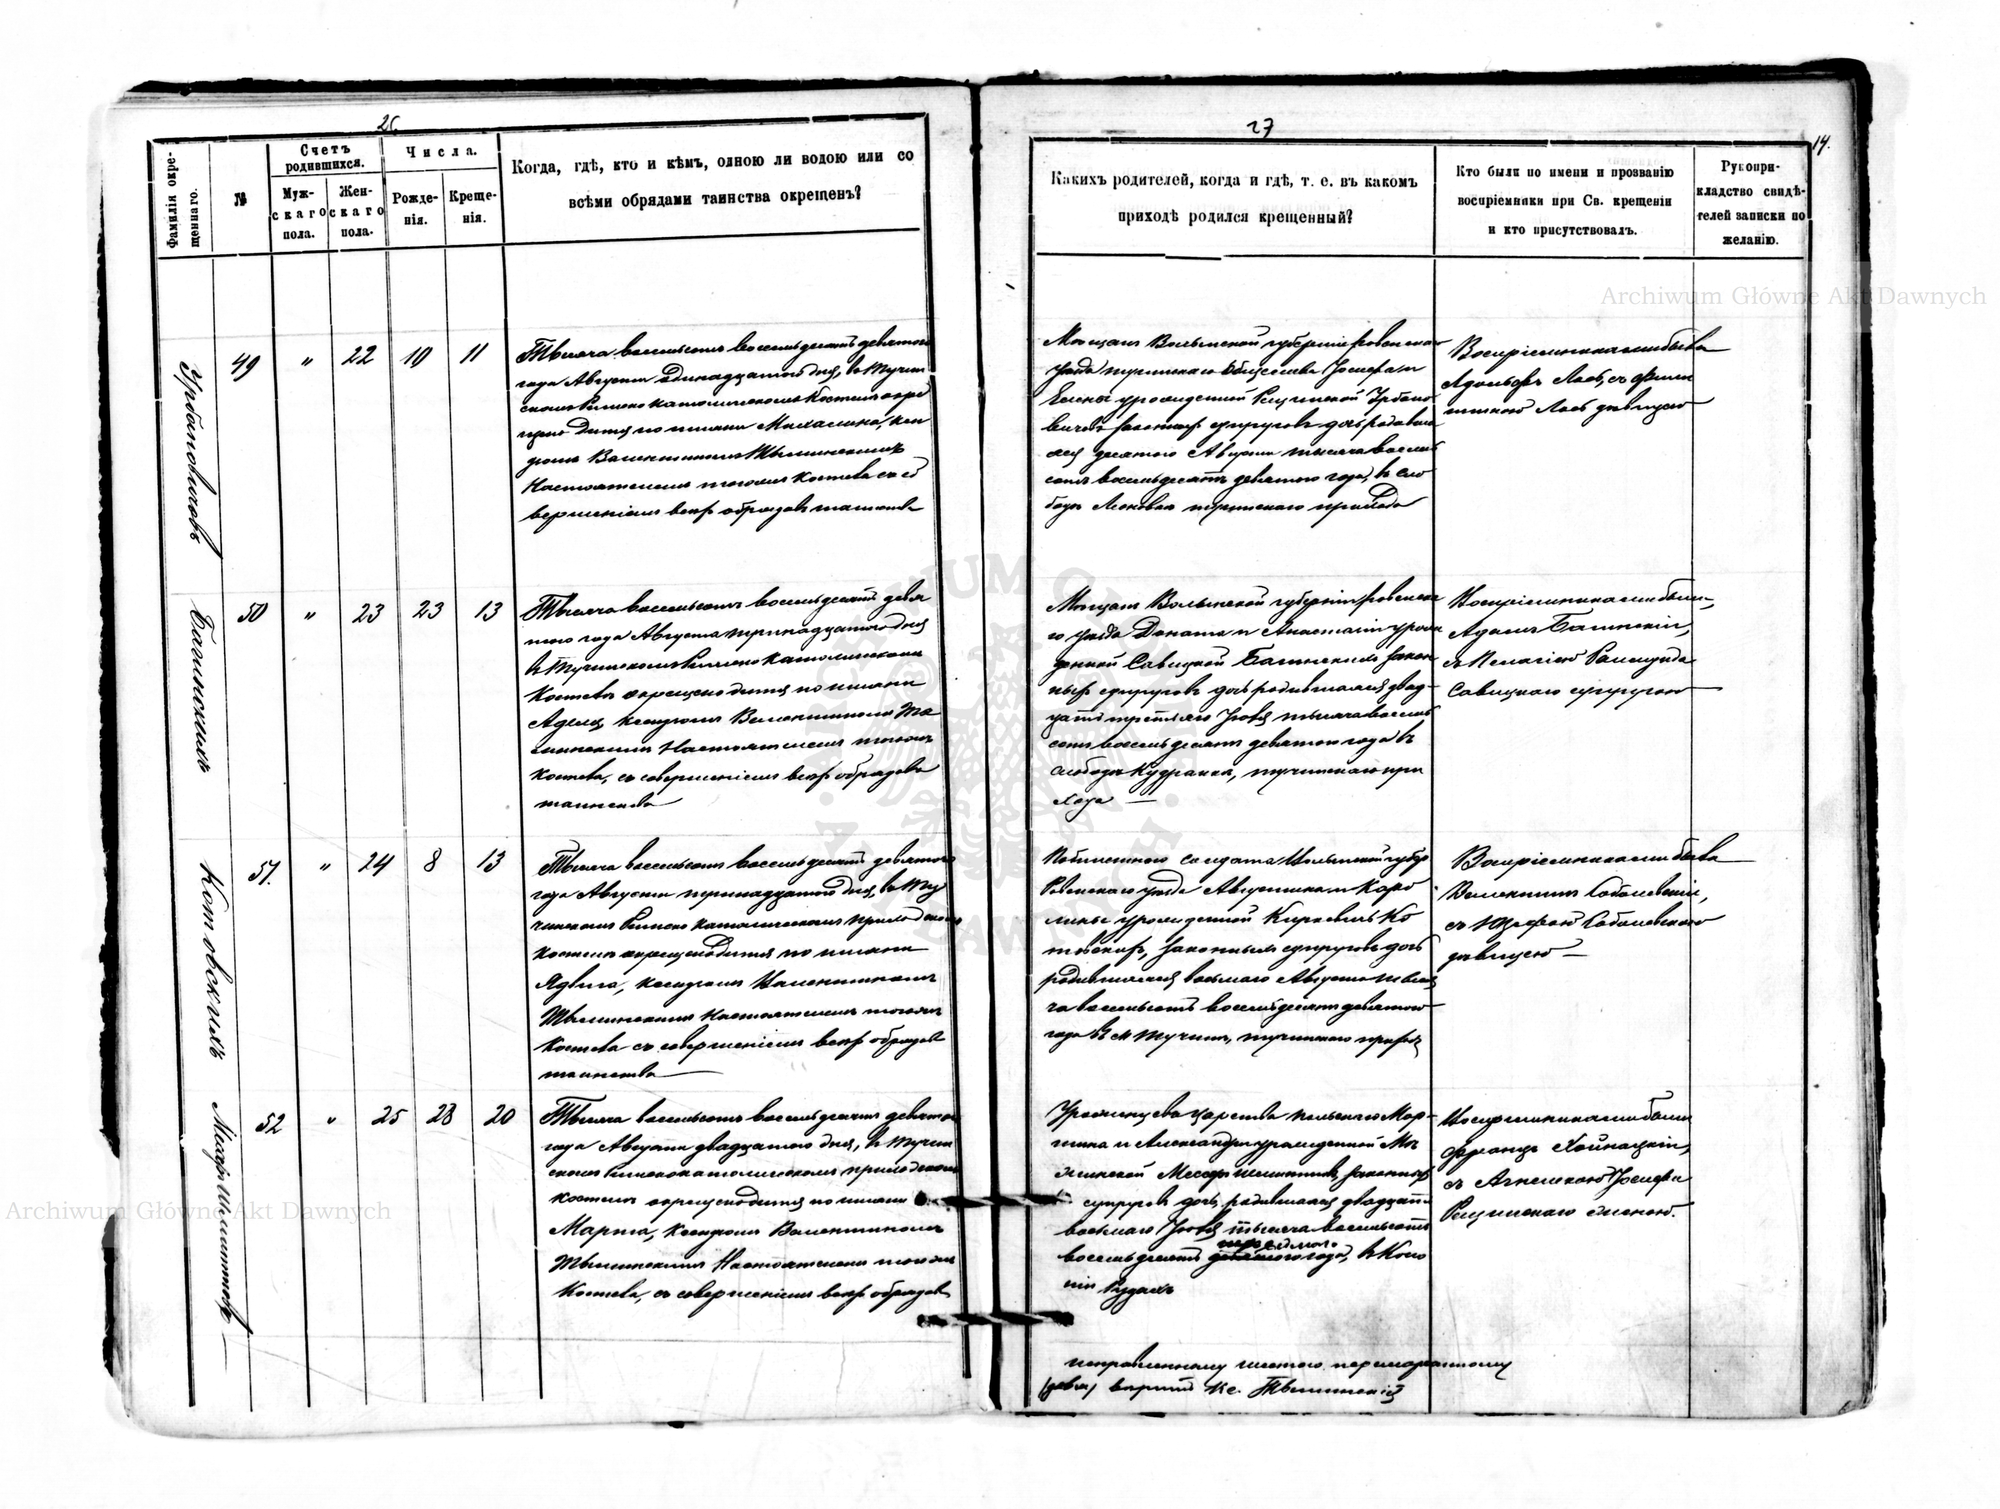 26.
Фамилія окре-
щеннаго.
№
Счетъ
родившихся.
Муж-
скаго
пола.
Жен-
скаго
пола.
Числа.
Рожде-
нія.
Креще-
нія.
Когда, гдѣ, кто и кѣмъ, одною ли водою или со
всѣми обрядами таинства окрещенъ?
Урбановичовъ
49 " 22 10 11
Тысяча восемьсотъ восемьдесятъ девятого
года Августа одинадцатого дня, въ Тучин
скомъ Римско католическомъ Костелѣ окре
щено дитя по имени Михалина, ксен
дзомъ Валентиномъ Тышинскимъ
Настоятелемъ тогожъ костела съ со
вершеніемъ всѣхъ обрядовъ таинства
Багинскихъ
50 " 23 23 13
Тысяча восемьсотъ восемьдесятъ девя
того года Августа тринадцатого дня
въ Тучинскомъ Римско католическомъ
Костелѣ окрещено дитя по имени
Аделя, ксендзомъ Валентиномъ Ты
шинскимъ Настоятелемъ тогожъ
костела, съ совершеніемъ всѣхъ обрядовъ
таинства
Котовскихъ
51. " 24 8 13
Тысяча восемьсотъ восемьдесятъ девятого
года Августа тринадцатого дня, въ Ту
чинскомъ Римско католическомъ приходскомъ
костелѣ окрещено дитя по имени
Ядвига, ксендзомъ Валентиномъ
Тышинскимъ Настоятелемъ тогожъ
Костела съ совершеніемъ всѣхъ обрядовъ
таинства
52 " 25 28 20
Тысяча восемьсотъ восемьдесятъ девятого
года Августа двадцатого дня, въ Тучин
скомъ Римскокатолическомъ приходскомъ
костелѣ окрещено дитя по имени
Марта, ксендзомъ Валентиномъ
Тышинскимъ Настоятелемъ тогожъ
Костела, съ совершеніемъ всѣхъ обрядовъ
27
14.
Какихъ родителей, когда и гдѣ, т. е. въ какомъ
приходѣ родился крещенный?
Кто были по имени и прозванію
воспріемники при Св. крещеніи
и кто присутствовалъ.
Рукопри-
кладство свидѣ-
телей записки по
желанію.
Мѣщанъ Волынской губерніи Ровенскаго
уѣзда тучинскаго общества Іосифа и
Елены урожденной Урбано
вичовъ законныхъ супруговъ дочь родивша
яся десятого Августа тысяча восемь
сотъ восемьдесятъ девятого года, въ сло
бодѣ тучинскаго прихода
Воспріемниками были
Адольфъ съ
дѣвицею
Мѣщанъ Волынской губерніи Ровенска
го уѣзда Доната и Анастасіи урож
денной Савицкой Багинскихъ закон
ныхъ супруговъ дочь родившаяся двад-
цать третьяго Іюля тысяча восемь
сотъ восемьдесятъ девятого года въ
слободѣ Кудранка, тучинскаго при
хода —
Воспріемниками были,
Адамъ Багинскій,
съ Пелагіею Раймунда
Савицкаго супругою
солдата Волынской губер
Ровенскаго уѣзда Августина и Каро
лины урожденной Ко
товскихъ, законныхъ супруговъ дочь
родившаяся восьмаго Августа тыся
ча восемьсотъ восемьдесятъ девятого
года въ м Тучинѣ, тучинскаго
Воспріемниками были
Валентинъ Соболевскій,
съ Юзефою Соболевскою
дѣвицею —
Уроженцевъ царства польскаго Мар-
тина и Александры урожденной
законныхъ
супруговъ дочь, родившаяся двадцать
восьмаго Іюля тысяча восемьсотъ
восемьдесятъ года, въ Коло
ніи Рудахъ
Воспріемниками были
Францъ Хойнацкій,
съ Агнешкою Іосифа
женою.
исправленному вместо перемараному
(девя) вѣрить Кс. Тышинскій
Archiwum Główne Akt Dawnych
Archiwum Główne Akt Dawnych